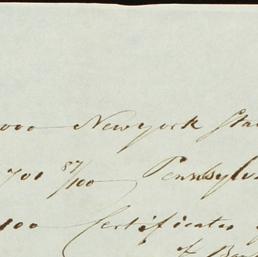 000 Newyork Sta
700 87/100 Pennsylv
100 Certificates
of Ba